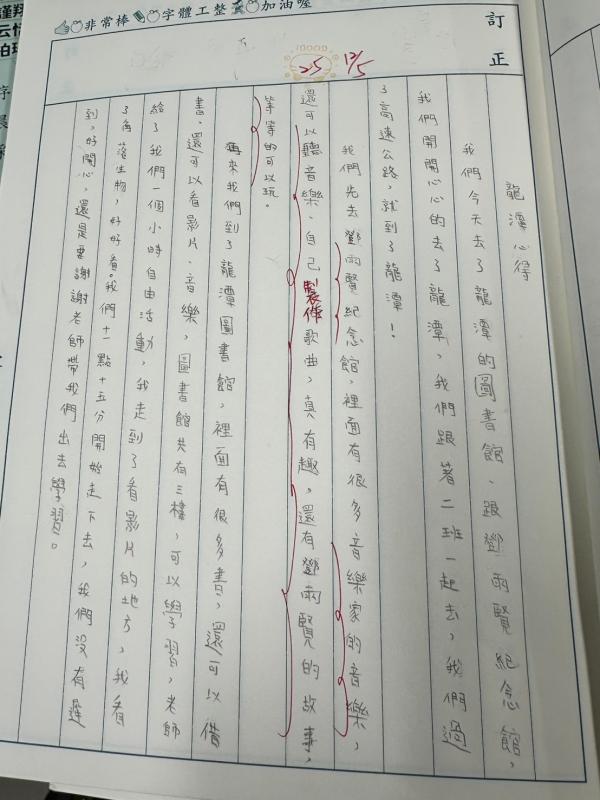 非常棒 字體工整 加油喔
訂正
25 12/5
龍潭心得
我們今天去了龍潭的圖書館、跟鄧雨賢紀念館,
我們開開心心的去了龍潭,我們跟著二班一起去,我們過
了高速公路,就到了龍潭!
我們先去鄧雨賢紀念館,裡面有很多音樂家的音樂,
還可以聽音樂、自己製作歌曲,真有趣,還有鄧雨賢的故事,
等等的可以玩。
再來我們到了龍潭圖書館,裡面有很多書,還可以借
書、還可以看影片、音樂,圖書館共有三樓,可以學習,老師
給了我們一個小時自由活動,我走到了看影片的地方,我看
了角落生物,好好看。我們十一點十五分開始走下去,我們沒有遲
到,好開心,還是要謝謝老師帶我們出去學習。